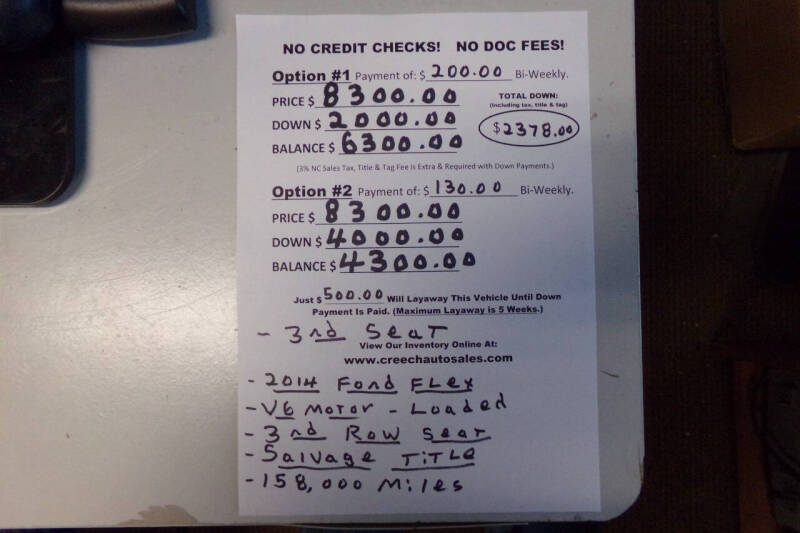 NO CREDIT CHECKS! NO DOC FEES!
Option #1 Payment of: $ 200.00 Bi-Weekly.
PRICE $ 8300.00
DOWN $ 2000.00
BALANCE $ 6300.00
TOTAL DOWN:
(Including tax, title & tag)
$2378.00
(3% NC Sales Tax, Title & Tag Fee is Extra & Required with Down Payments.)
Option #2 Payment of: $ 130.00 Bi-Weekly.
PRICE $ 8300.00
DOWN $ 4000.00
BALANCE $ 4300.00
Just $ 500.00 Will Layaway This Vehicle Until Down
Payment Is Paid. (Maximum Layaway is 5 Weeks.)
- 3rd Seat
View Our Inventory Online At:
www.creechautosales.com
- 2014 Ford FLex
- V6 Motor - Loaded
- 3rd Row Seat
- Salvage TiTLe
- 158,000 Miles